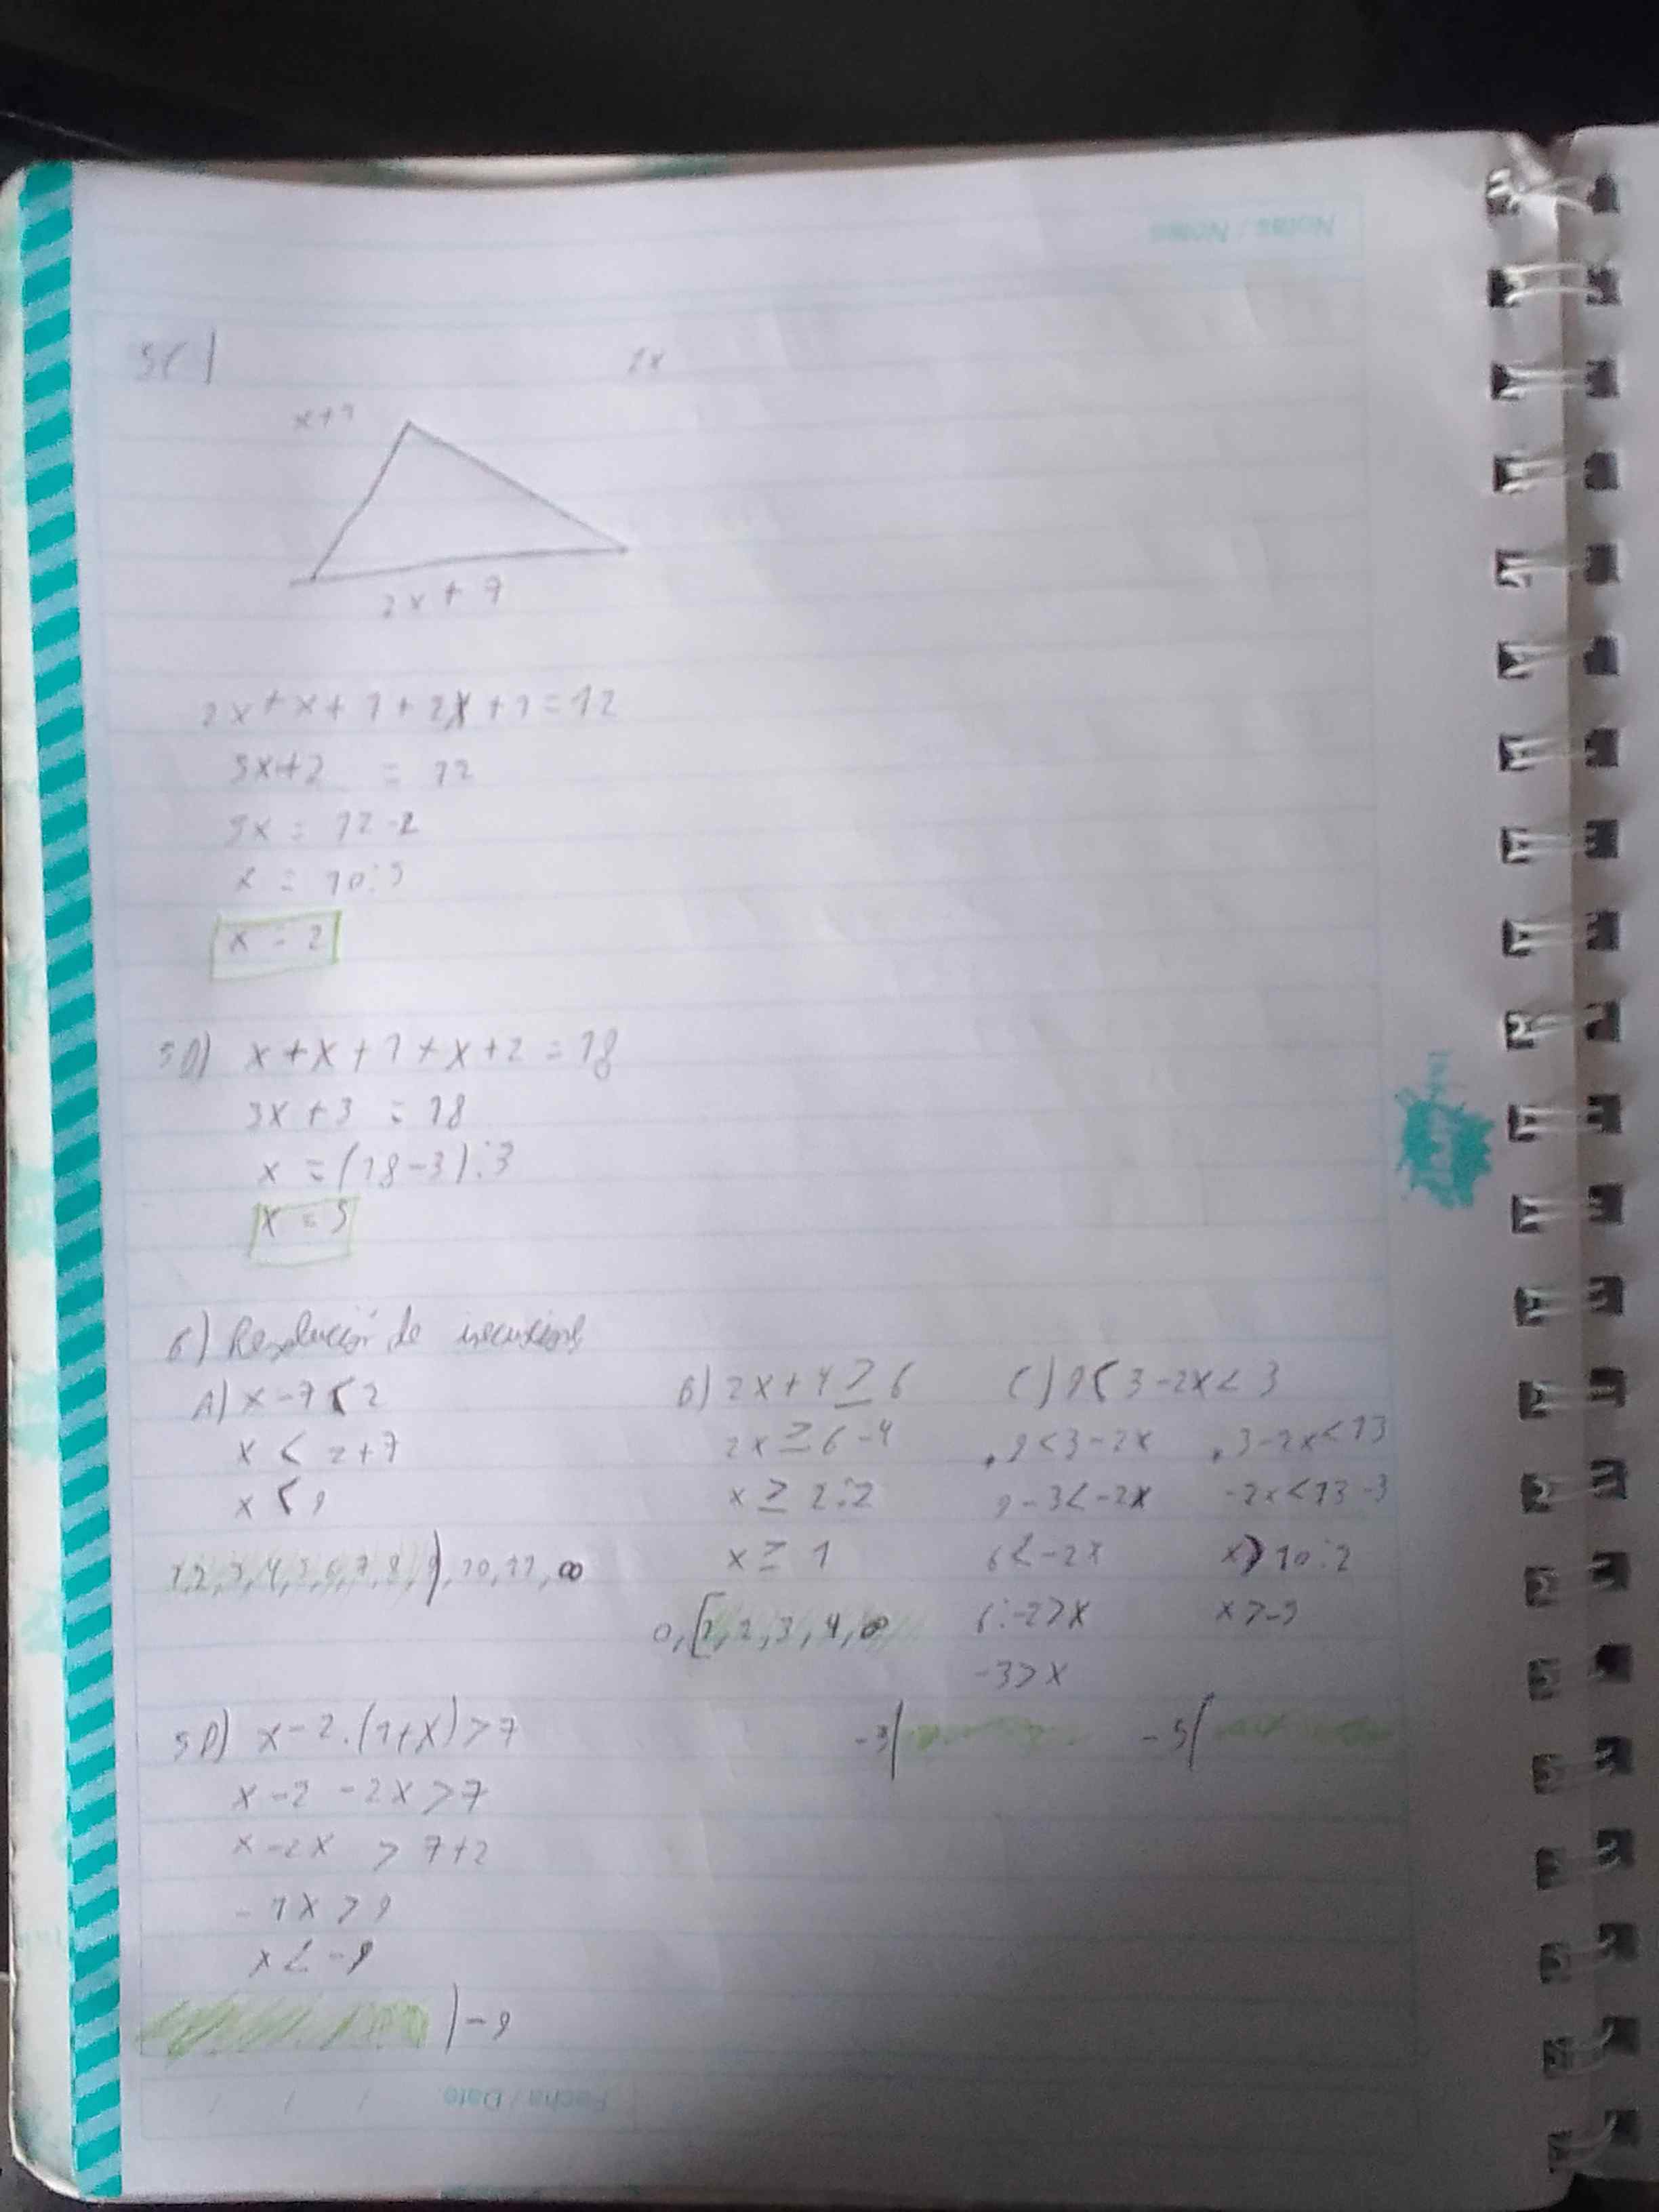 5C)
2x
x+1
2x + 1
2x+x+1+2x+1=12
5x+2 = 12
5x = 12-2
x = 10:5
x = 2
5D) x+x+1+x+2=18
3x+3 = 18
x =(18-3):3
x = 5
6) Resolución de inecuaciones
A) x-7<2
x < 2+7
x < 9
1,2,3,4,5,6,7,8,9),10,11,∞
B) 2x+4≥6
2x≥6-4
x ≥ 2:2
x ≥ 1
0,[1,2,3,4,∞
C) 9<3-2x<3
. 9<3-2x
9-3<-2x
6<-2x
6:-2>x
-3>x
. 3-2x<13
-2x<13-3
x>10:2
x>-5
-3(
-5(
5D) x-2.(1+x)>7
x-2-2x>7
x-2x > 7+2
-1x>9
x<-9
)-9
Notas / Notes
Fecha / Date